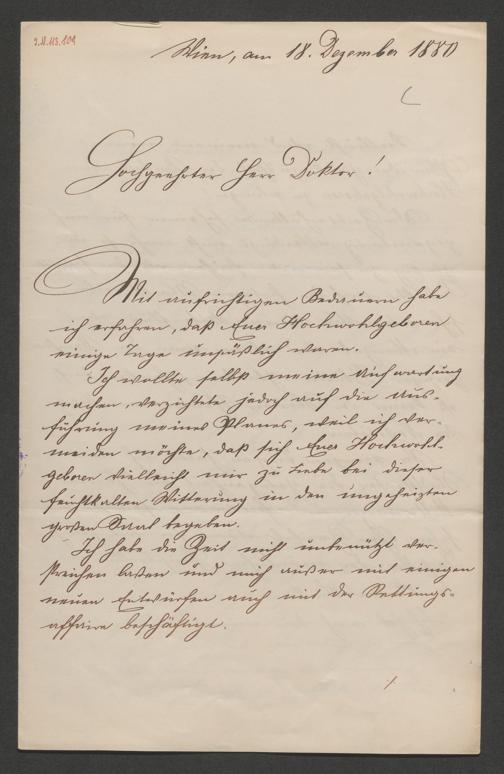 Wien, am 18. Dezember 1880
Hochgeehrter Herr Doktor!
Mit aufrichtigem Bedauern habe
ich erfahren, daß Euer Hochwohlgeboren
einige Tage unpäßlich waren.
Ich wollte selbst meine Aufwartung
machen, verzichtete jedoch auf die Aus-
führung meines Planes, weil ich ver-
meiden möchte, daß sich Euer Hochwohl-
geboren vielleicht mir zu Liebe bei dieser
feuchtkalten Witterung in den ungeheizten
großen Saal begeben.
Ich habe die Zeit nicht unbenützt ver-
streichen laßen und mich außer mit einigen
neuen Entwürfen auch mit der Rettungs-
affaire beschäftigt.